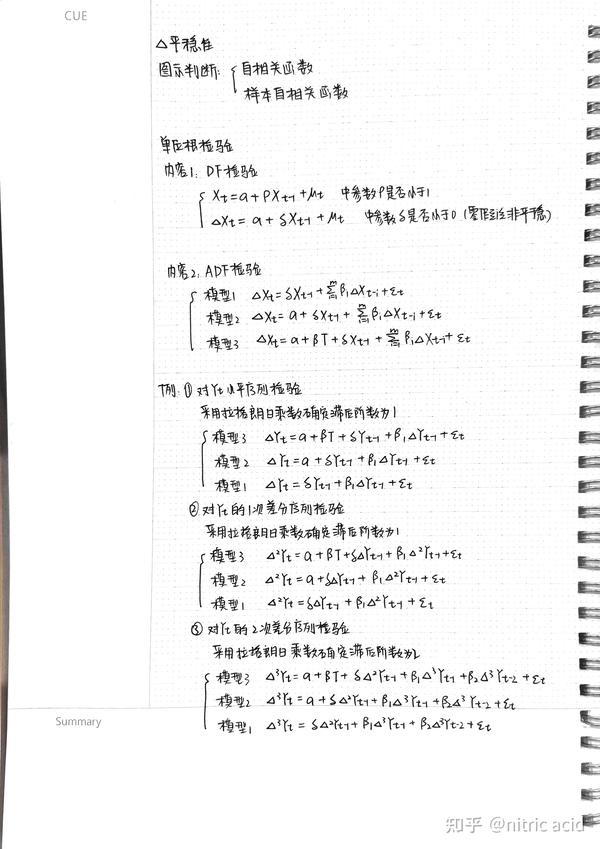 CUE
△平稳性
图示判断: { 自相关函数
样本自相关函数
单位根检验
内容1: DF检验
Xt = α + ρXt-1 + μt 中参数ρ是否小于1
ΔXt = α + δXt-1 + μt 中参数δ是否小于0 (零假设:非平稳)
内容2: ADF检验
模型1 ΔXt = δXt-1 + Σᵐᵢ₌₁ β₁ΔXt-i + εt
模型2 ΔXt = α + δXt-1 + Σᵐᵢ₌₁ β₁ΔXt-i + εt
模型3 ΔXt = α + βT + δXt-1 + Σᵐᵢ₌₁ β₁ΔXt-i + εt
例: ① 对Yt水平序列检验
采用拉格朗日乘数确定滞后阶数为1
模型3 ΔYt = α + βT + δYt-1 + β₁ΔYt-1 + εt
模型2 ΔYt = α + δYt-1 + β₁ΔYt-1 + εt
模型1 ΔYt = δYt-1 + β₁ΔYt-1 + εt
② 对Yt的1次差分序列检验
采用拉格朗日乘数确定滞后阶数为1
模型3 Δ²Yt = α + βT + δΔYt-1 + β₁Δ²Yt-1 + εt
模型2 Δ²Yt = α + δΔYt-1 + β₁Δ²Yt-1 + εt
模型1 Δ²Yt = δΔYt-1 + β₁Δ²Yt-1 + εt
③ 对Yt的2次差分序列检验
采用拉格朗日乘数确定滞后阶数为2
模型3 Δ³Yt = α + βT + δΔ²Yt-1 + β₁Δ³Yt-1 + β₂Δ³Yt-2 + εt
模型2 Δ³Yt = α + δΔ²Yt-1 + β₁Δ³Yt-1 + β₂Δ³Yt-2 + εt
模型1 Δ³Yt = δΔ²Yt-1 + β₁Δ³Yt-1 + β₂Δ³Yt-2 + εt
Summary
知乎 @nitric acid